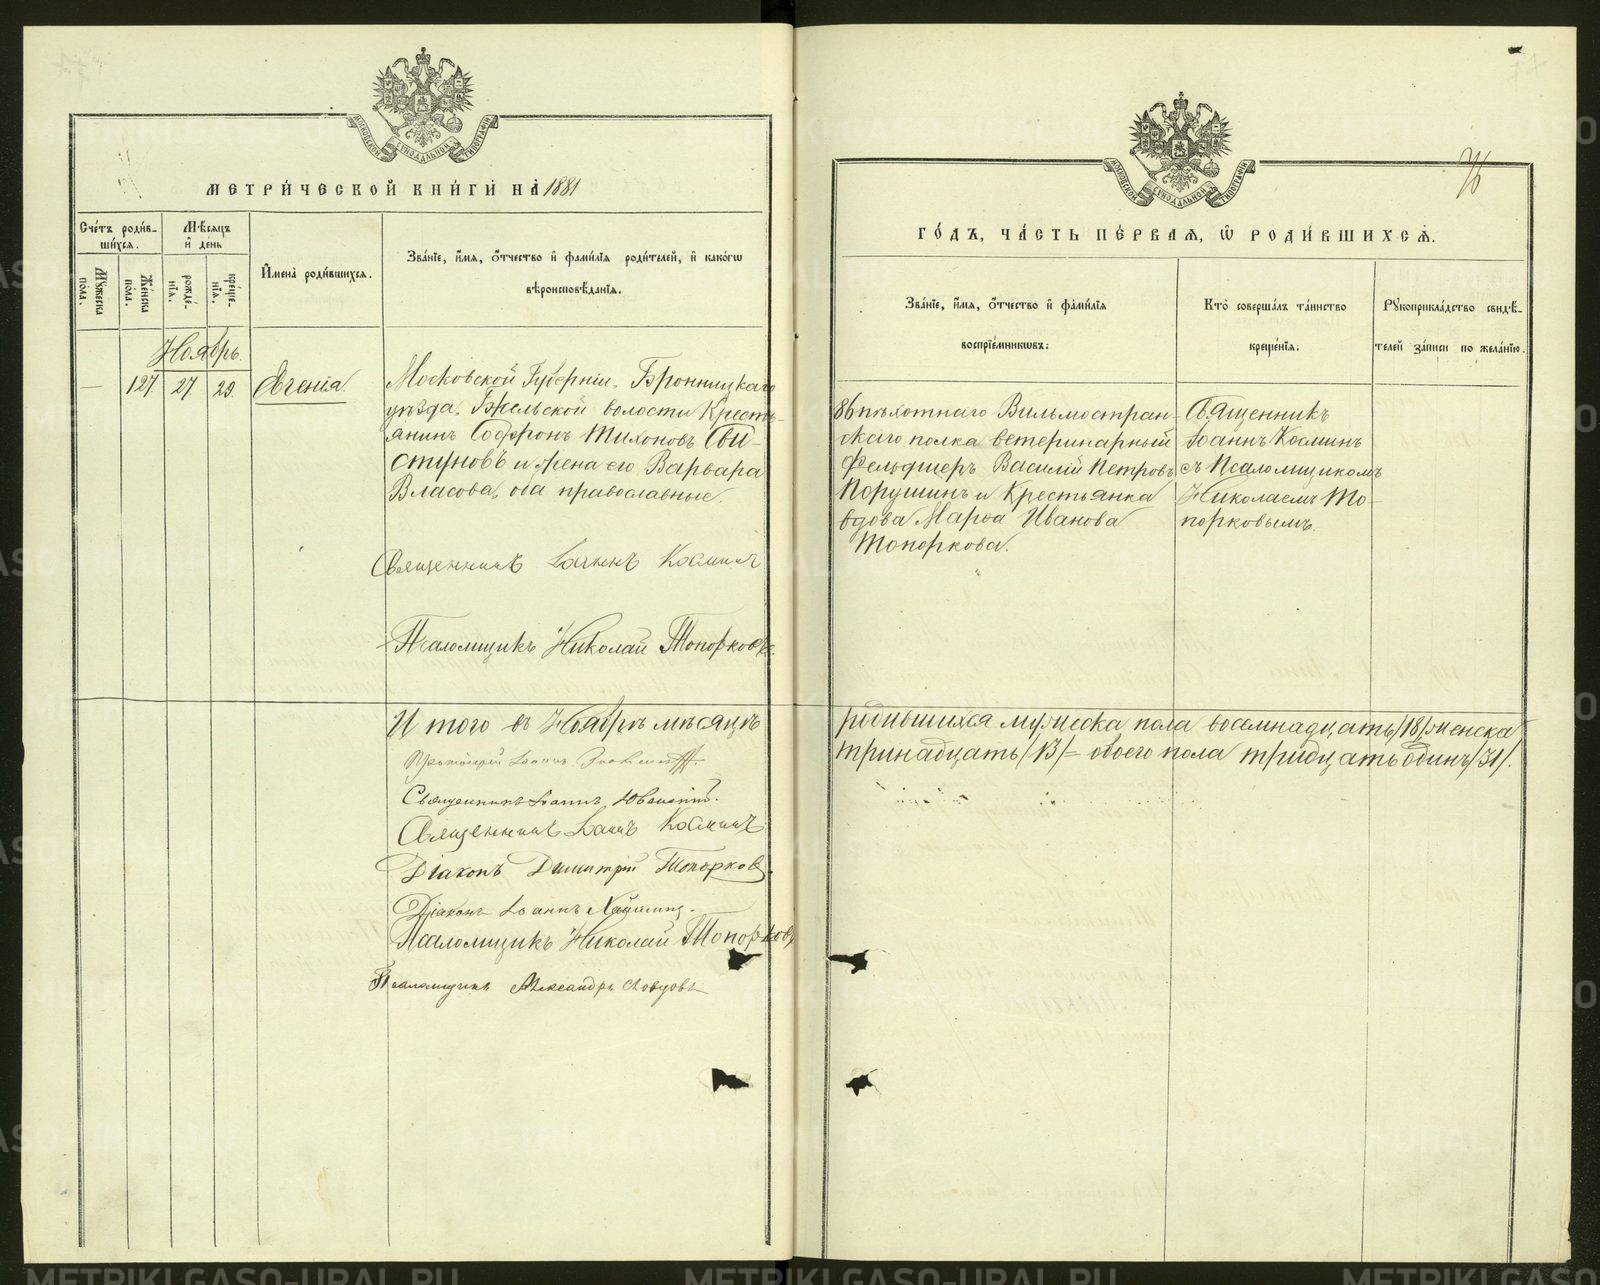 МОСКОВСКОЙ СѴНОДАЛЬНОЙ ТИПОГРАФІИ
МЕТРИ́ЧЕСКОЙ КНИ́ГИ НА 1881
Сче́тъ роди́в-
ши́хся.
Мѣ́сяцъ
и҆ де́нь
И҆мена̀ роди́вшихся.
Зва́нїе, и҆́мя, ѻ҆́тчество и҆ фами́лїя роди́телей, и҆ како́гѡ
вѣроисповѣ́данїя.
Мꙋ́жеска по́ла.
Же́нска по́ла.
рожде́-нїя.
креще́-нїя.
Ноябрь.
— 127 27 29. Евгенія.
Московской Губерніи, Бронницкаго
уѣзда, Гжельской волости Кресть-
янинъ Софронъ Тихоновъ Сви-
стуновъ и жена его Варвара
Власова, оба православные.
Священникъ Іоаннъ Косминъ
Псаломщикъ Николай Топорковъ.
Итого въ Ноябрѣ мѣсяцѣ
Протоіерей Іоаннъ
Священникъ Іоаннъ
Священникъ Іоаннъ Косминъ
Діаконъ Димитрій Топорковъ.
Діаконъ Іоаннъ
Псаломщикъ Николай Топорковъ
Псаломщикъ Александръ Ловцовъ
МОСКОВСКОЙ СѴНОДАЛЬНОЙ ТИПОГРАФІИ
76
ГО́ДЪ, ЧА́СТЬ ПЕ́РВАЯ, Ѽ РОДИ́ВШИХСЯ.
Зва́нїе, и҆́мя, ѻ҆́тчество и҆ фами́лїя
воспрїе́мникѡвъ:
Кто̀ соверша́лъ та́инство
креще́нїя:
Рꙋкоприкла́дство свидѣ́-
телей за́писи по жела́нїю.
86 пѣхотнаго Вильмостран-
скаго полка ветеринарный
Фельдшеръ Василій Петровъ
Порушинъ и Крестьянка
вдова Марѳа Иванова
Топоркова.
Священникъ
Іоаннъ Косминъ
съ Псаломщикомъ
Николаемъ То-
порковымъ.
родившихся мужеска пола восемнадцать /18/ женска
тринадцать /13/ — обоего пола тридцать одинъ /31/.
METRIKI.GASO-URAL.RU